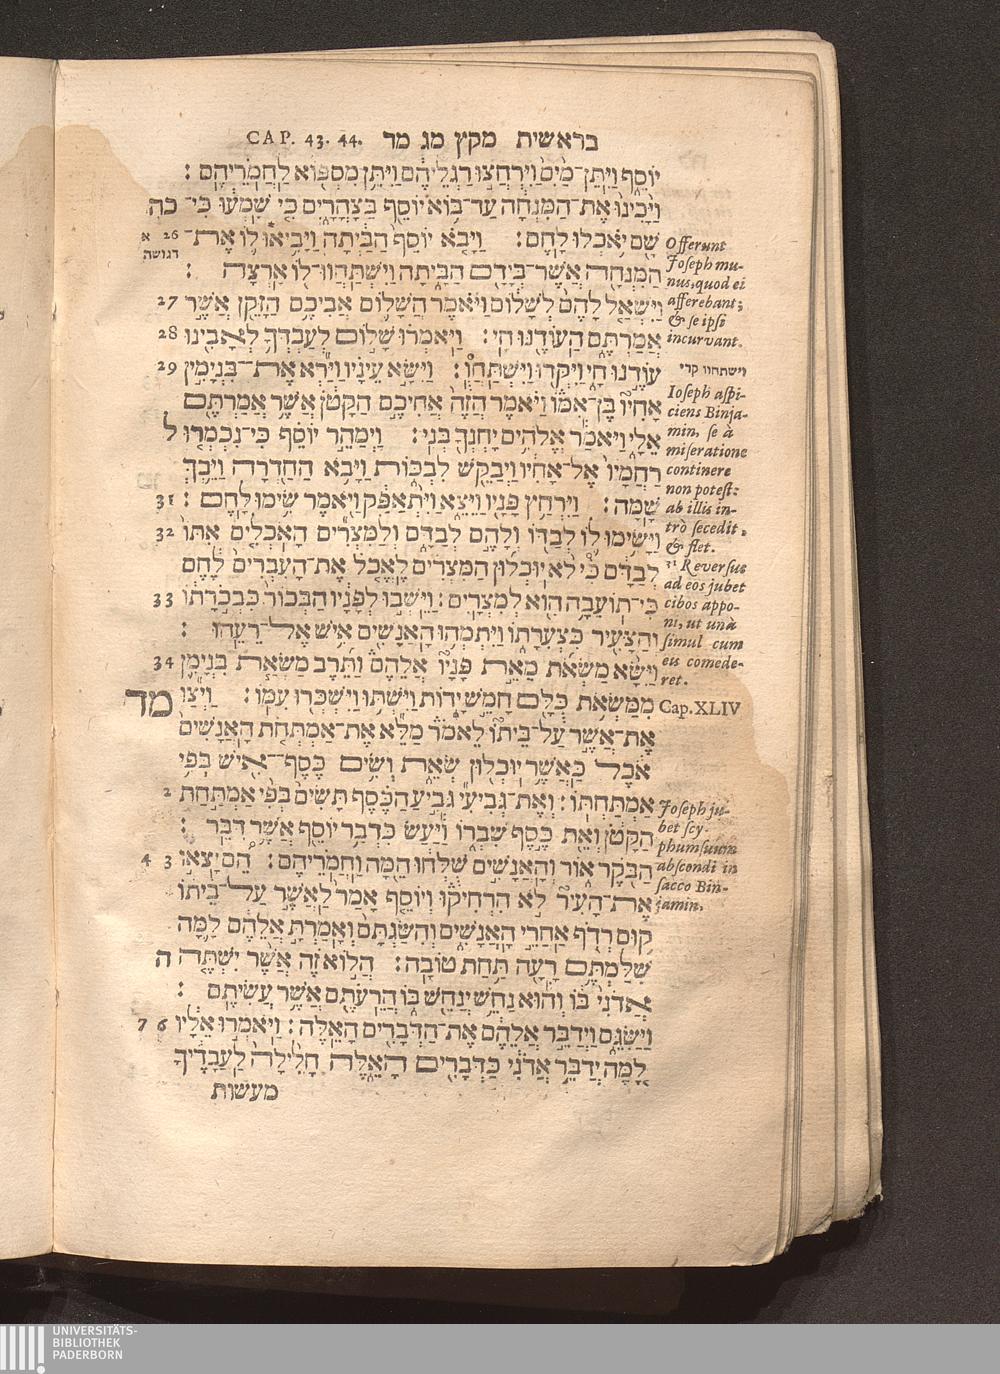 CAP. 43. 44. בראשית מקץ מג מד
יוֹסֵף וַיִּתֶּן־מַיִם וַיִּרְחֲצוּ רַגְלֵיהֶם וַיִּתֵּן מִסְפּוֹא לַחֲמֹרֵיהֶם׃
וַיָּכִינוּ אֶת־הַמִּנְחָה עַד־בּוֹא יוֹסֵף בַּצָּהֳרָיִם כִּי שָׁמְעוּ כִּי־ כה
שָׁם יֹאכְלוּ לָחֶם׃ וַיָּבֹא יוֹסֵף הַבַּיְתָה וַיָּבִיאּוּ לוֹ אֶת־ 26 א
דגושה
הַמִּנְחָה אֲשֶׁר־בְּיָדָם הַבָּיְתָה וַיִּשְׁתַּחֲווּ־לוֹ אָרְצָה׃
וַיִּשְׁאַל לָהֶם לְשָׁלוֹם וַיֹּאמֶר הֲשָׁלוֹם אֲבִיכֶם הַזָּקֵן אֲשֶׁר 27
אֲמַרְתֶּם הַעוֹדֶנּוּ חָי׃ וַיֹּאמְרוּ שָׁלוֹם לְעַבְדְּךָ לְאָבִינוּ 28
עוֹדֶנּוּ חָי וַיִּקְּדוּ וַיִּשְׁתַּחֲוֻ׃ וַיִּשָּׂא עֵינָיו וַיַּרְא אֶת־בִּנְיָמִין 29
אָחִיו בֶּן־אִמּוֹ וַיֹּאמֶר הֲזֶה אֲחִיכֶם הַקָּטֹן אֲשֶׁר אֲמַרְתֶּם
אֵלָי וַיֹּאמַר אֱלֹהִים יָחְנְךָ בְּנִי׃ וַיְמַהֵר יוֹסֵף כִּי־נִכְמְרוּ ל
רַחֲמָיו אֶל־אָחִיו וַיְבַקֵּשׁ לִבְכּוֹת וַיָּבֹא הַחַדְרָה וַיֵּבְךְּ
שָׁמָּה׃ וַיִּרְחַץ פָּנָיו וַיֵּצֵא וַיִּתְאַפַּק וַיֹּאמֶר שִׂימוּ לָחֶם׃ 31
וַיָּשִׂימוּ לוֹ לְבַדּוֹ וְלָהֶם לְבַדָּם וְלַמִּצְרִים הָאֹכְלִים אִתּוֹ 32
לְבַדָּם כִּי לֹא יוּכְלוּן הַמִּצְרִים לֶאֱכֹל אֶת־הָעִבְרִים לֶחֶם
כִּי־תוֹעֵבָה הִוא לְמִצְרָיִם׃ וַיֵּשְׁבוּ לְפָנָיו הַבְּכוֹר כִּבְכֹרָתוֹ 33
וְהַצָּעִיר כִּצְעִרָתוֹ וַיִּתְמְהוּ הָאֲנָשִׁים אִישׁ אֶל־רֵעֵהוּ׃
וַיִּשָּׂא מַשְׂאֹת מֵאֵת פָּנָיו אֲלֵהֶם וַתֵּרֶב מַשְׂאַת בִּנְיָמִן 34
מִמַּשְׂאֹת כֻּלָּם חָמֵשׁ יָדוֹת וַיִּשְׁתּוּ וַיִּשְׁכְּרוּ עִמּוֹ׃ וַיְצַו מד
אֶת־אֲשֶׁר עַל־בֵּיתוֹ לֵאמֹר מַלֵּא אֶת־אַמְתְּחֹת הָאֲנָשִׁים
אֹכֶל כַּאֲשֶׁר יוּכְלוּן שְׂאֵת וְשִׂים כֶּסֶף־אִישׁ בְּפִי
אַמְתַּחְתּוֹ׃ וְאֶת־גְּבִיעִי גְּבִיעַ הַכֶּסֶף תָּשִׂים בְּפִי אַמְתַּחַת 2
הַקָּטֹן וְאֵת כֶּסֶף שִׁבְרוֹ וַיַּעַשׂ כִּדְבַר יוֹסֵף אֲשֶׁר דִּבֵּר׃
הַבֹּקֶר אוֹר וְהָאֲנָשִׁים שֻׁלְּחוּ הֵמָּה וַחֲמֹרֵיהֶם׃ הֵם יָצְאוּ 3 4
אֶת־הָעִיר לֹא הִרְחִיקוּ וְיוֹסֵף אָמַר לַאֲשֶׁר עַל־בֵּיתוֹ
קוּם רְדֹף אַחֲרֵי הָאֲנָשִׁים וְהִשַּׂגְתָּם וְאָמַרְתָּ אֲלֵהֶם לָמָּה
שִׁלַּמְתֶּם רָעָה תַּחַת טוֹבָה׃ הֲלוֹא זֶה אֲשֶׁר יִשְׁתֶּה ה
אֲדֹנִי בּוֹ וְהוּא נַחֵשׁ יְנַחֵשׁ בּוֹ הֲרֵעֹתֶם אֲשֶׁר עֲשִׂיתֶם׃
וַיַּשִּׂגֵם וַיְדַבֵּר אֲלֵהֶם אֶת־הַדְּבָרִים הָאֵלֶּה׃ וַיֹּאמְרוּ אֵלָיו 6 7
לָמָּה יְדַבֵּר אֲדֹנִי כַּדְּבָרִים הָאֵלֶּה חָלִילָה לַעֲבָדֶיךָ
מעשות
Offerunt
Joseph mu-
nus, quod ei
afferebant;
& se ipsi
incurvant.
וישתחוו קרי
Ioseph aspi-
ciens Binja-
min, se à
miseratione
continere
non potest:
ab illis in-
trò secedit,
& flet.
31 Reversus
ad eos jubet
cibos appo-
ni, ut unà
simul cum
eis comede-
ret.
Cap. XLIV
Joseph ju-
bet scy-
phum suum
abscondi in
sacco Bin-
jamin.
UNIVERSITÄTS-
BIBLIOTHEK
PADERBORN